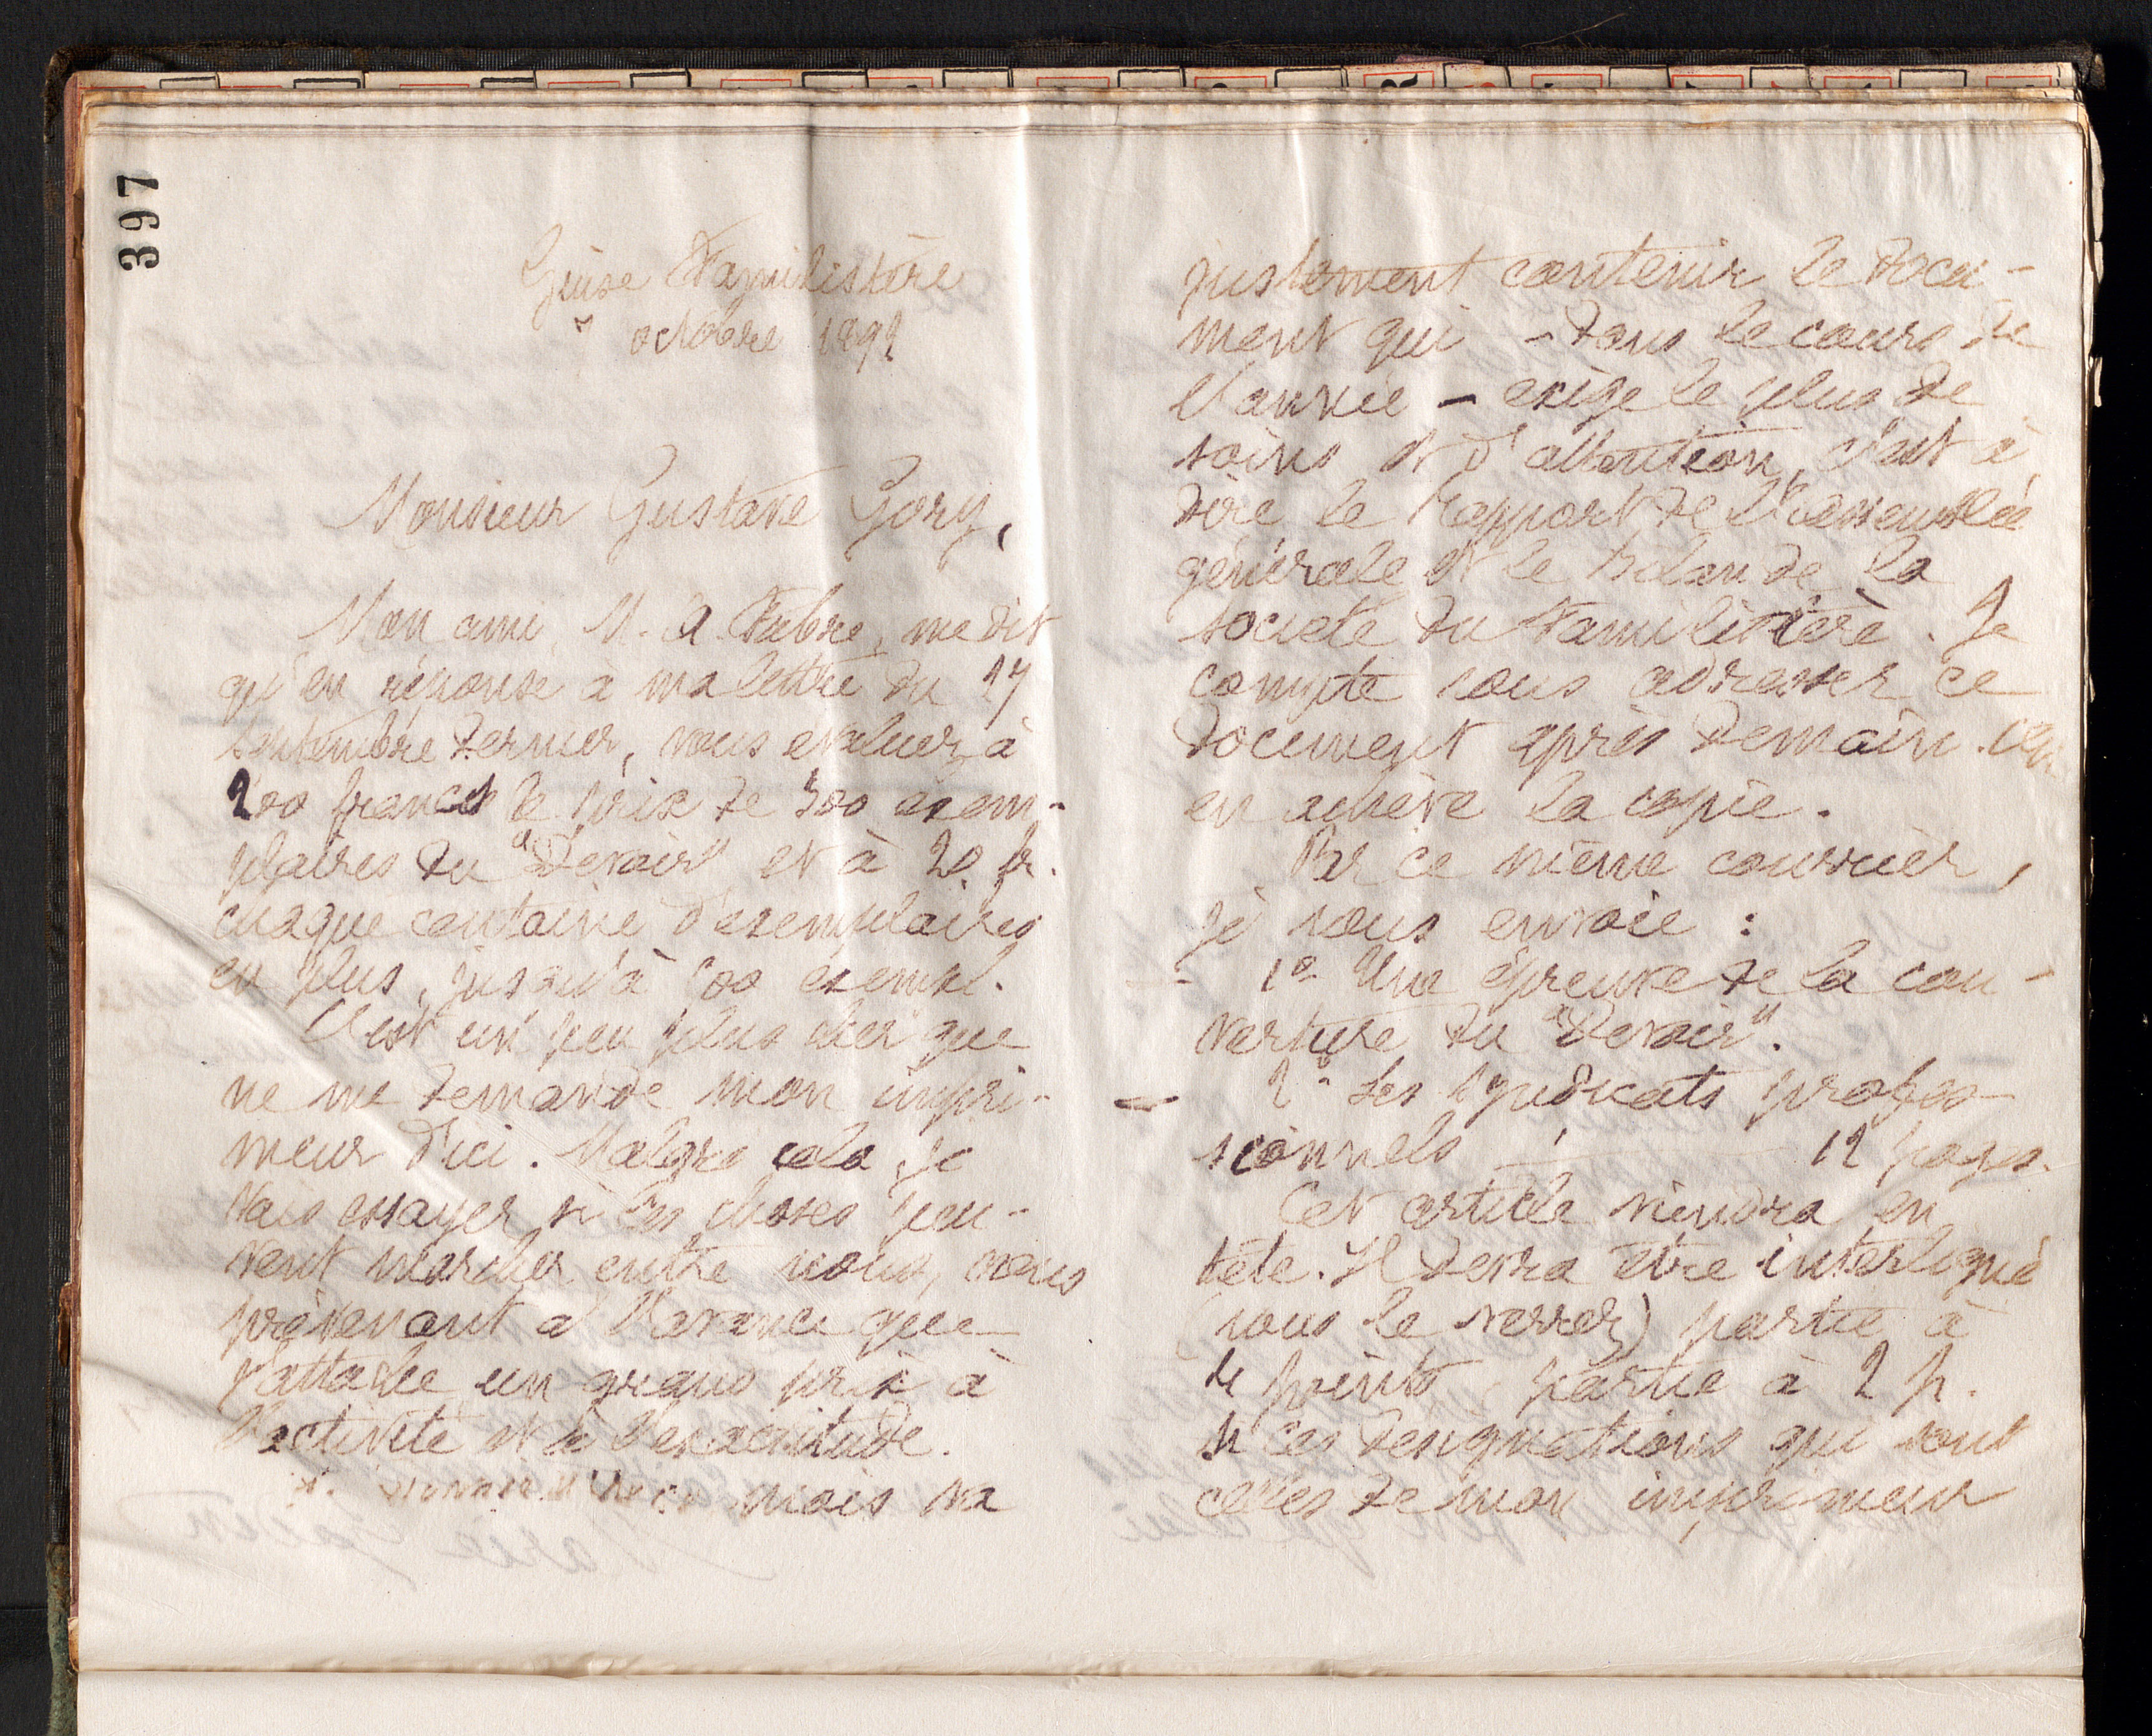 397
Guise Familistère
7 octobre 1892
Monsieur Gustave Gory,
Mon ami, M. A. Fabre, me dit
qu'en réponse à ma lettre du 17
septembre dernier, vous évaluez à
200 francs le prix de 500 exem-
plaires du "Devoir" et à 20 fr.
chaque centaine d'exemplaires
en plus, jusqu'à exempl.
C'est un peu plus cher que
ne me demande mon impri-
meur d'ici. Malgré cela je
vais essayer si les choses peu-
vent marcher entre nous, vous
prévenant à l'avance que
j'attache un grand prix à
l'activité et à l'exactitude.
mois va
justement contenir le docu-
ment qui - dans le cours de
l'année - exige le plus de
soins et d'attention, c'est à
dire le Rapport de l'assemblée
générale et le bilan de la
société du Familistère. Je
compte vous adresser ce
document après demain. On
en achève la copie.
Par ce même courrier,
je vous envoie :
- 1° Une épreuve de la cou-
verture du "Devoir".
- 2° Les syndicats profes-
sionnels 12 pages.
Cet article viendra en
tête. Il devra être interligné
(vous le verrez) partie à
4 points, partie à 2 p.
Si ces désignations qui sont
celles de mon imprimeur